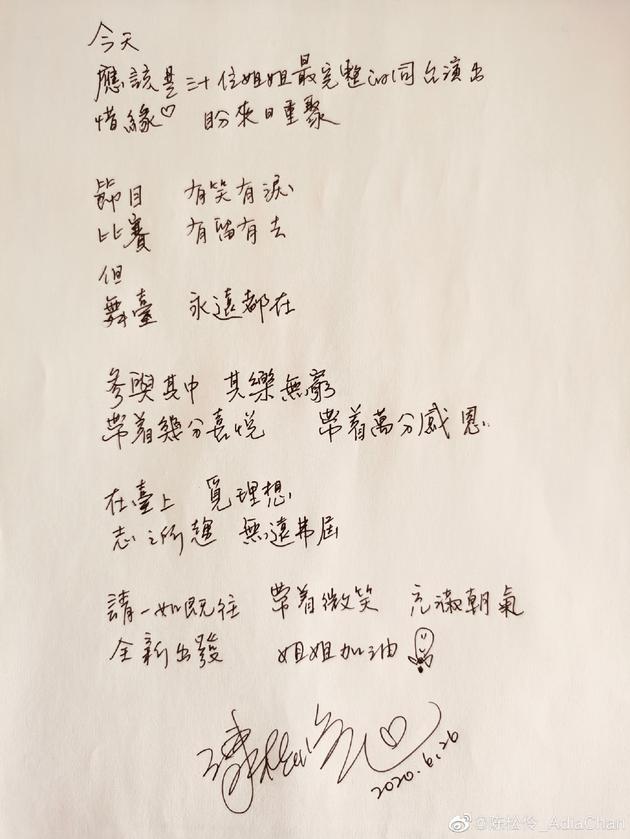 今天
應該是三十位姐姐最完整的同台演出
惜緣♡ 盼來日重聚
節目 有笑有淚
比賽 有留有去
但
舞臺 永遠都在
參與其中 其樂無窮
帶着幾分喜悅 帶着萬分感恩
在臺上 覓理想
志之所趨 無遠弗屆
請一如既往 帶着微笑 充滿朝氣
全新出發 姐姐加油
陳松伶♡
2020.6.26
@陈松伶_AdiaChan